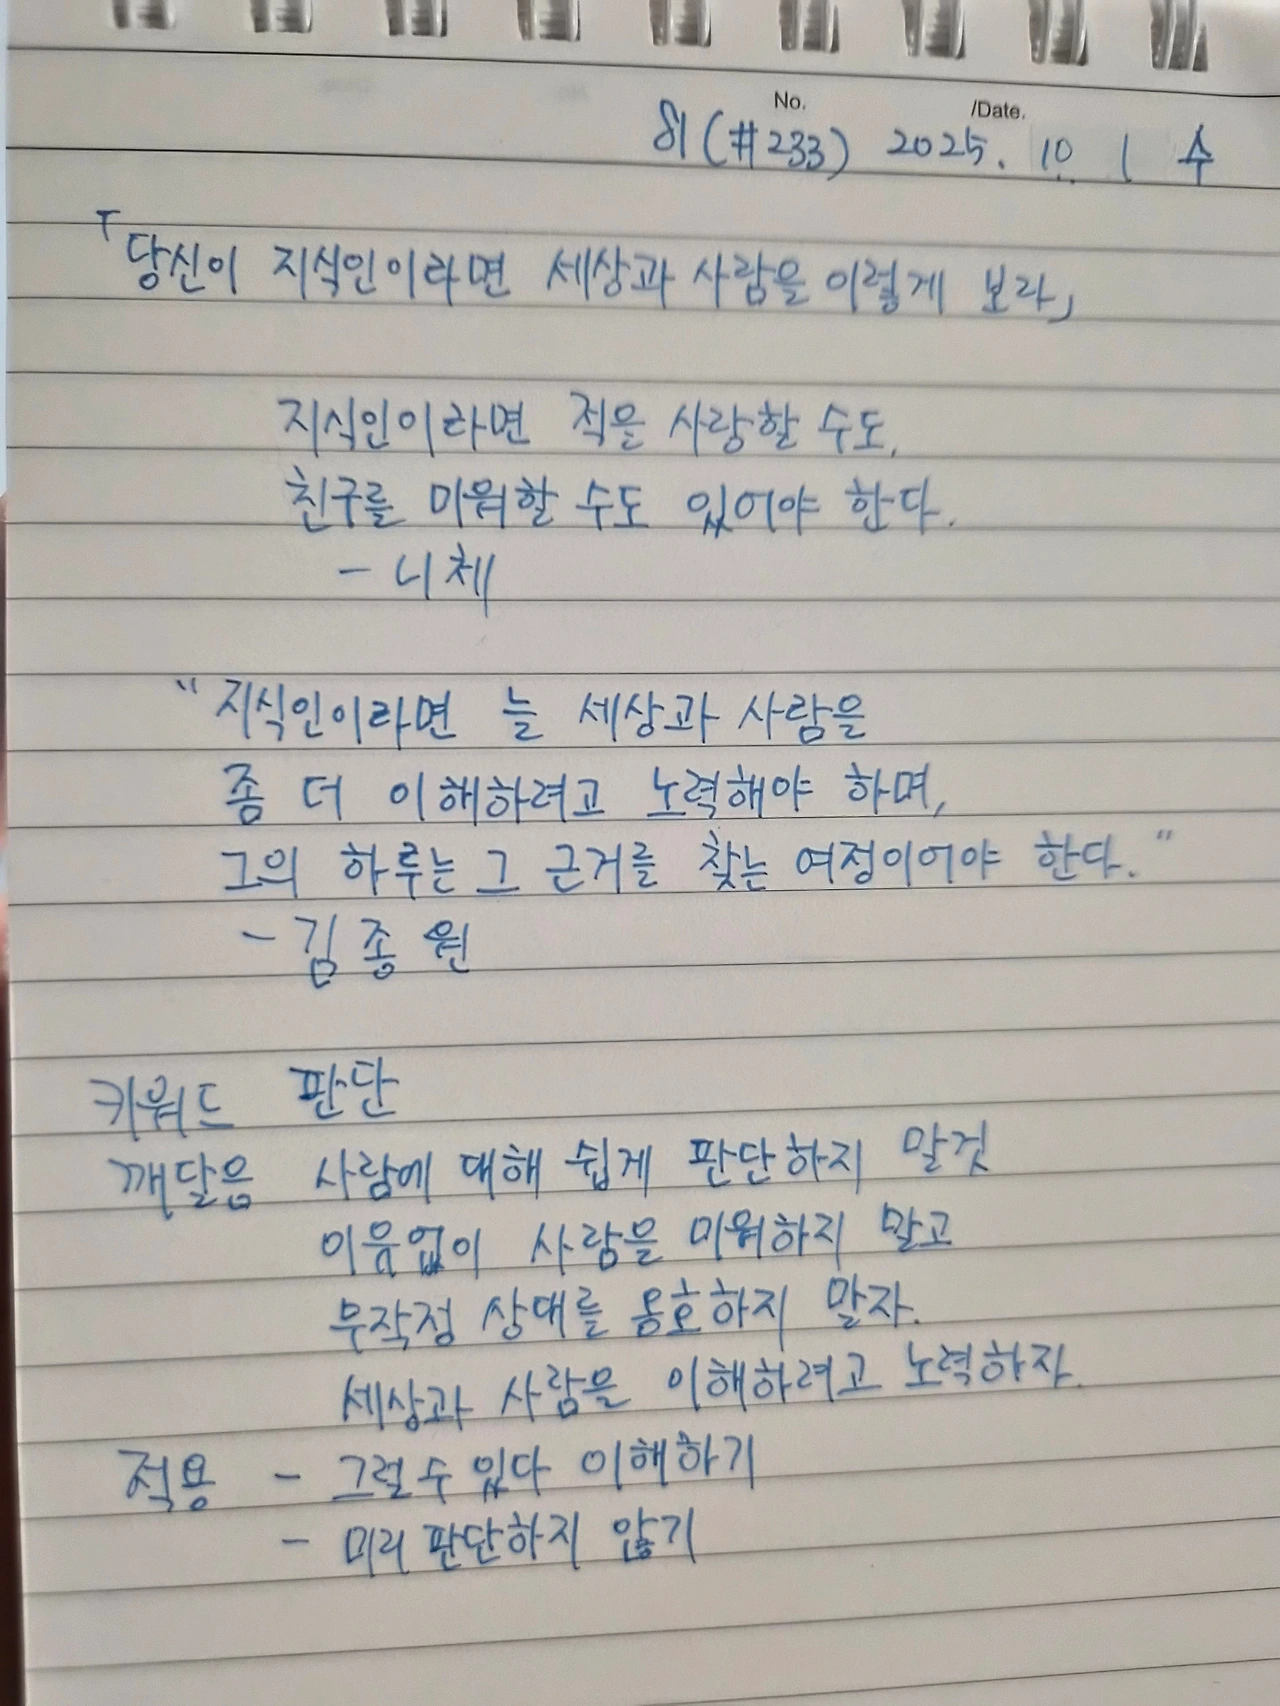 No. /Date.
81 (#233) 2025. 10. 1 수
「당신이 지식인이라면 세상과 사람을 이렇게 보라」
지식인이라면 적을 사랑할 수도,
친구를 미워할 수도 있어야 한다.
- 니체
"지식인이라면 늘 세상과 사람을
좀 더 이해하려고 노력해야 하며,
그의 하루는 그 근거를 찾는 여정이어야 한다."
- 김종원
키워드 판단
깨달음 사람에 대해 쉽게 판단하지 말것
이유없이 사람을 미워하지 말고
무작정 상대를 옹호하지 말자.
세상과 사람을 이해하려고 노력하자.
적용 - 그럴수 있다 이해하기
- 미리 판단하지 않기